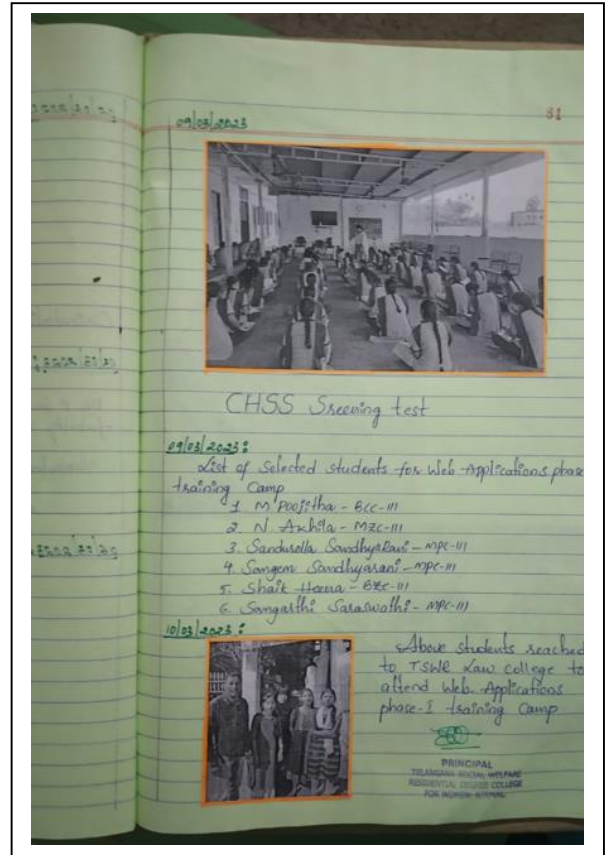 81
09/03/2023
CHSS Sreening test
09/03/2023:
List of Selected students for Web-Applications phase
training Camp
1. M Poojitha - BCC-III
2. N. Akhila - MZC-III
3. SandhyaRani - MPC-III
4. Sangem Sandhyarani - MPC-III
5. Shaik Heena - BZC-III
6. Sangarthi Saraswathi - MPC-III
10/03/2023:
Above students reached
to TSWR Law college to
attend Web-Applications
phase-I training Camp
PRINCIPAL
TELANGANA SOCIAL WELFARE
RESIDENTIAL DEGREE COLLEGE
FOR WOMEN, NIRMAL